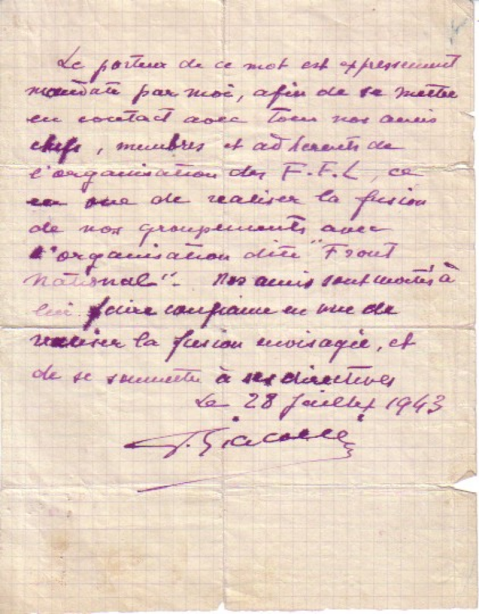 Le porteur de ce mot est expressement
mandaté par moi, afin de se mettre
en contact avec tous nos amis
chefs, membres et adherents de
l'organisation des F.F.L, ce
en vue de realiser la fusion
de nos groupements avec
l'organisation dite "Front
National". Nos amis sont invités à
lui faire confiance en vue de
realiser la fusion envisagée, et
de se soumettre à ses directives
Le 28 Juillet 1943